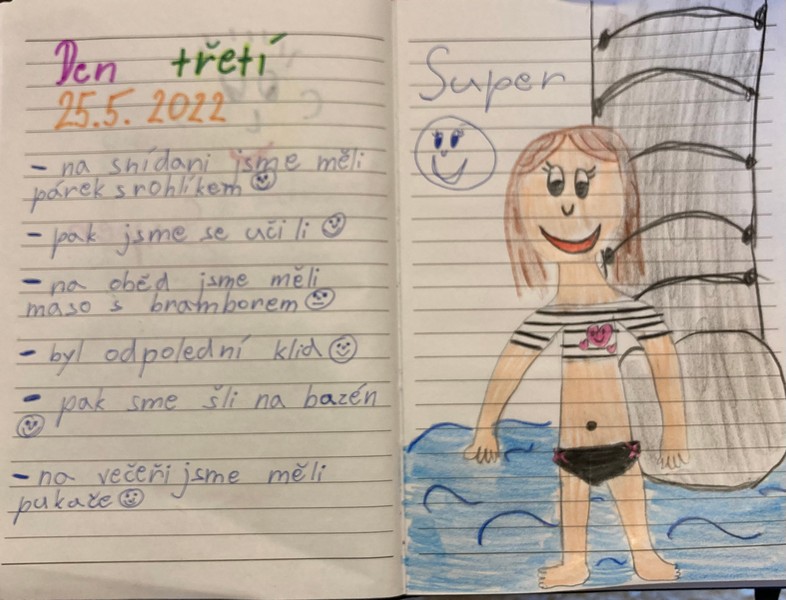 Den třetí
25.5. 2022
- na snídani jsme měli
párek s rohlíkem
- pak jsme se učili
- na oběd jsme měli
maso s bramborem
- byl odpolední klid
- pak sme šli na bazén
- na večeři jsme měli
pukače
Super